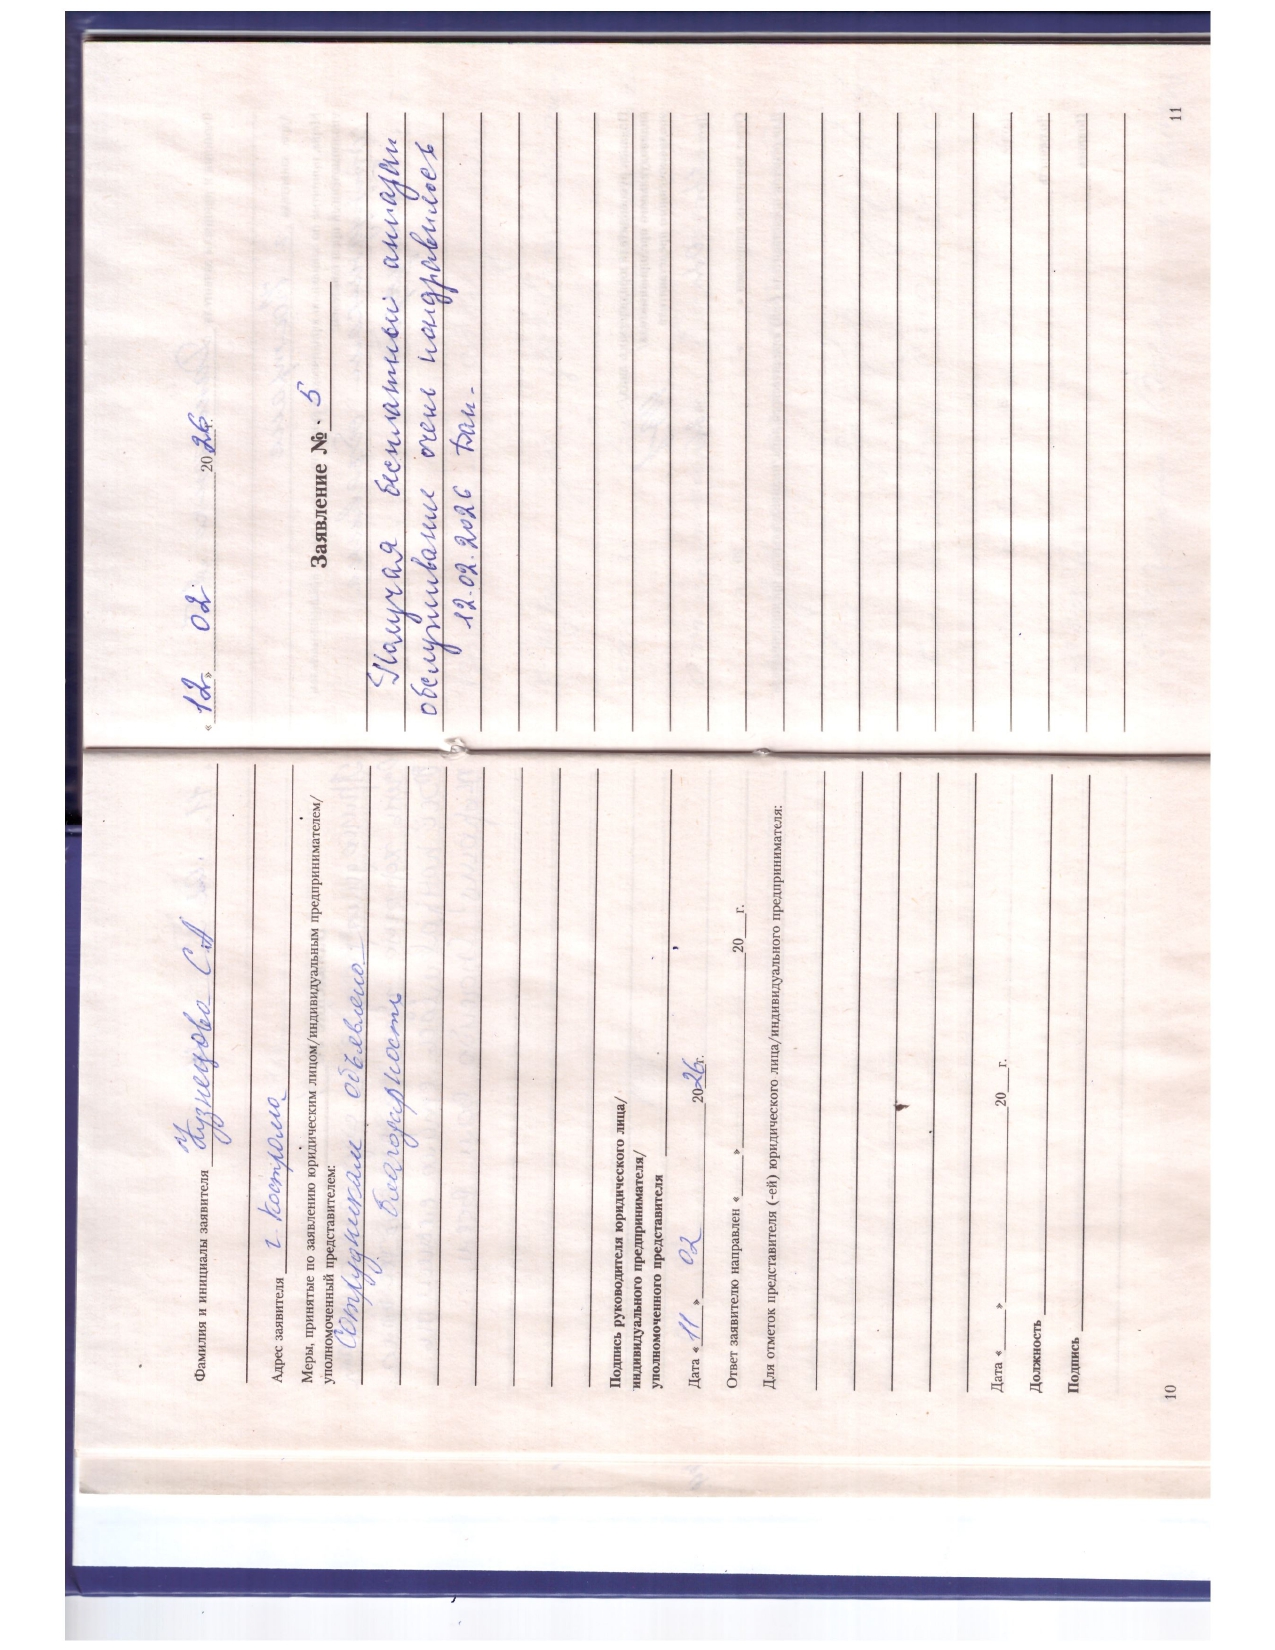 Фамилия и инициалы заявителя Кузнецова С А
Адрес заявителя г Кострома
Меры, принятые по заявлению юридическим лицом/индивидуальным предпринимателем/
уполномоченный представителем:
Сотрудникам объявлено
благодарность
Подпись руководителя юридического лица/
индивидуального предпринимателя/
уполномоченного представителя
Дата « 11 » 02 2026г.
Ответ заявителю направлен «____» 20__г.
Для отметок представителя (-ей) юридического лица/индивидуального предпринимателя:
Дата «____» 20__г.
Должность
Подпись
10
« 12 » 02 2026г.
Заявление № 5
Получая бесплатный
обслуживание очень понравилось
12.02.2026
11